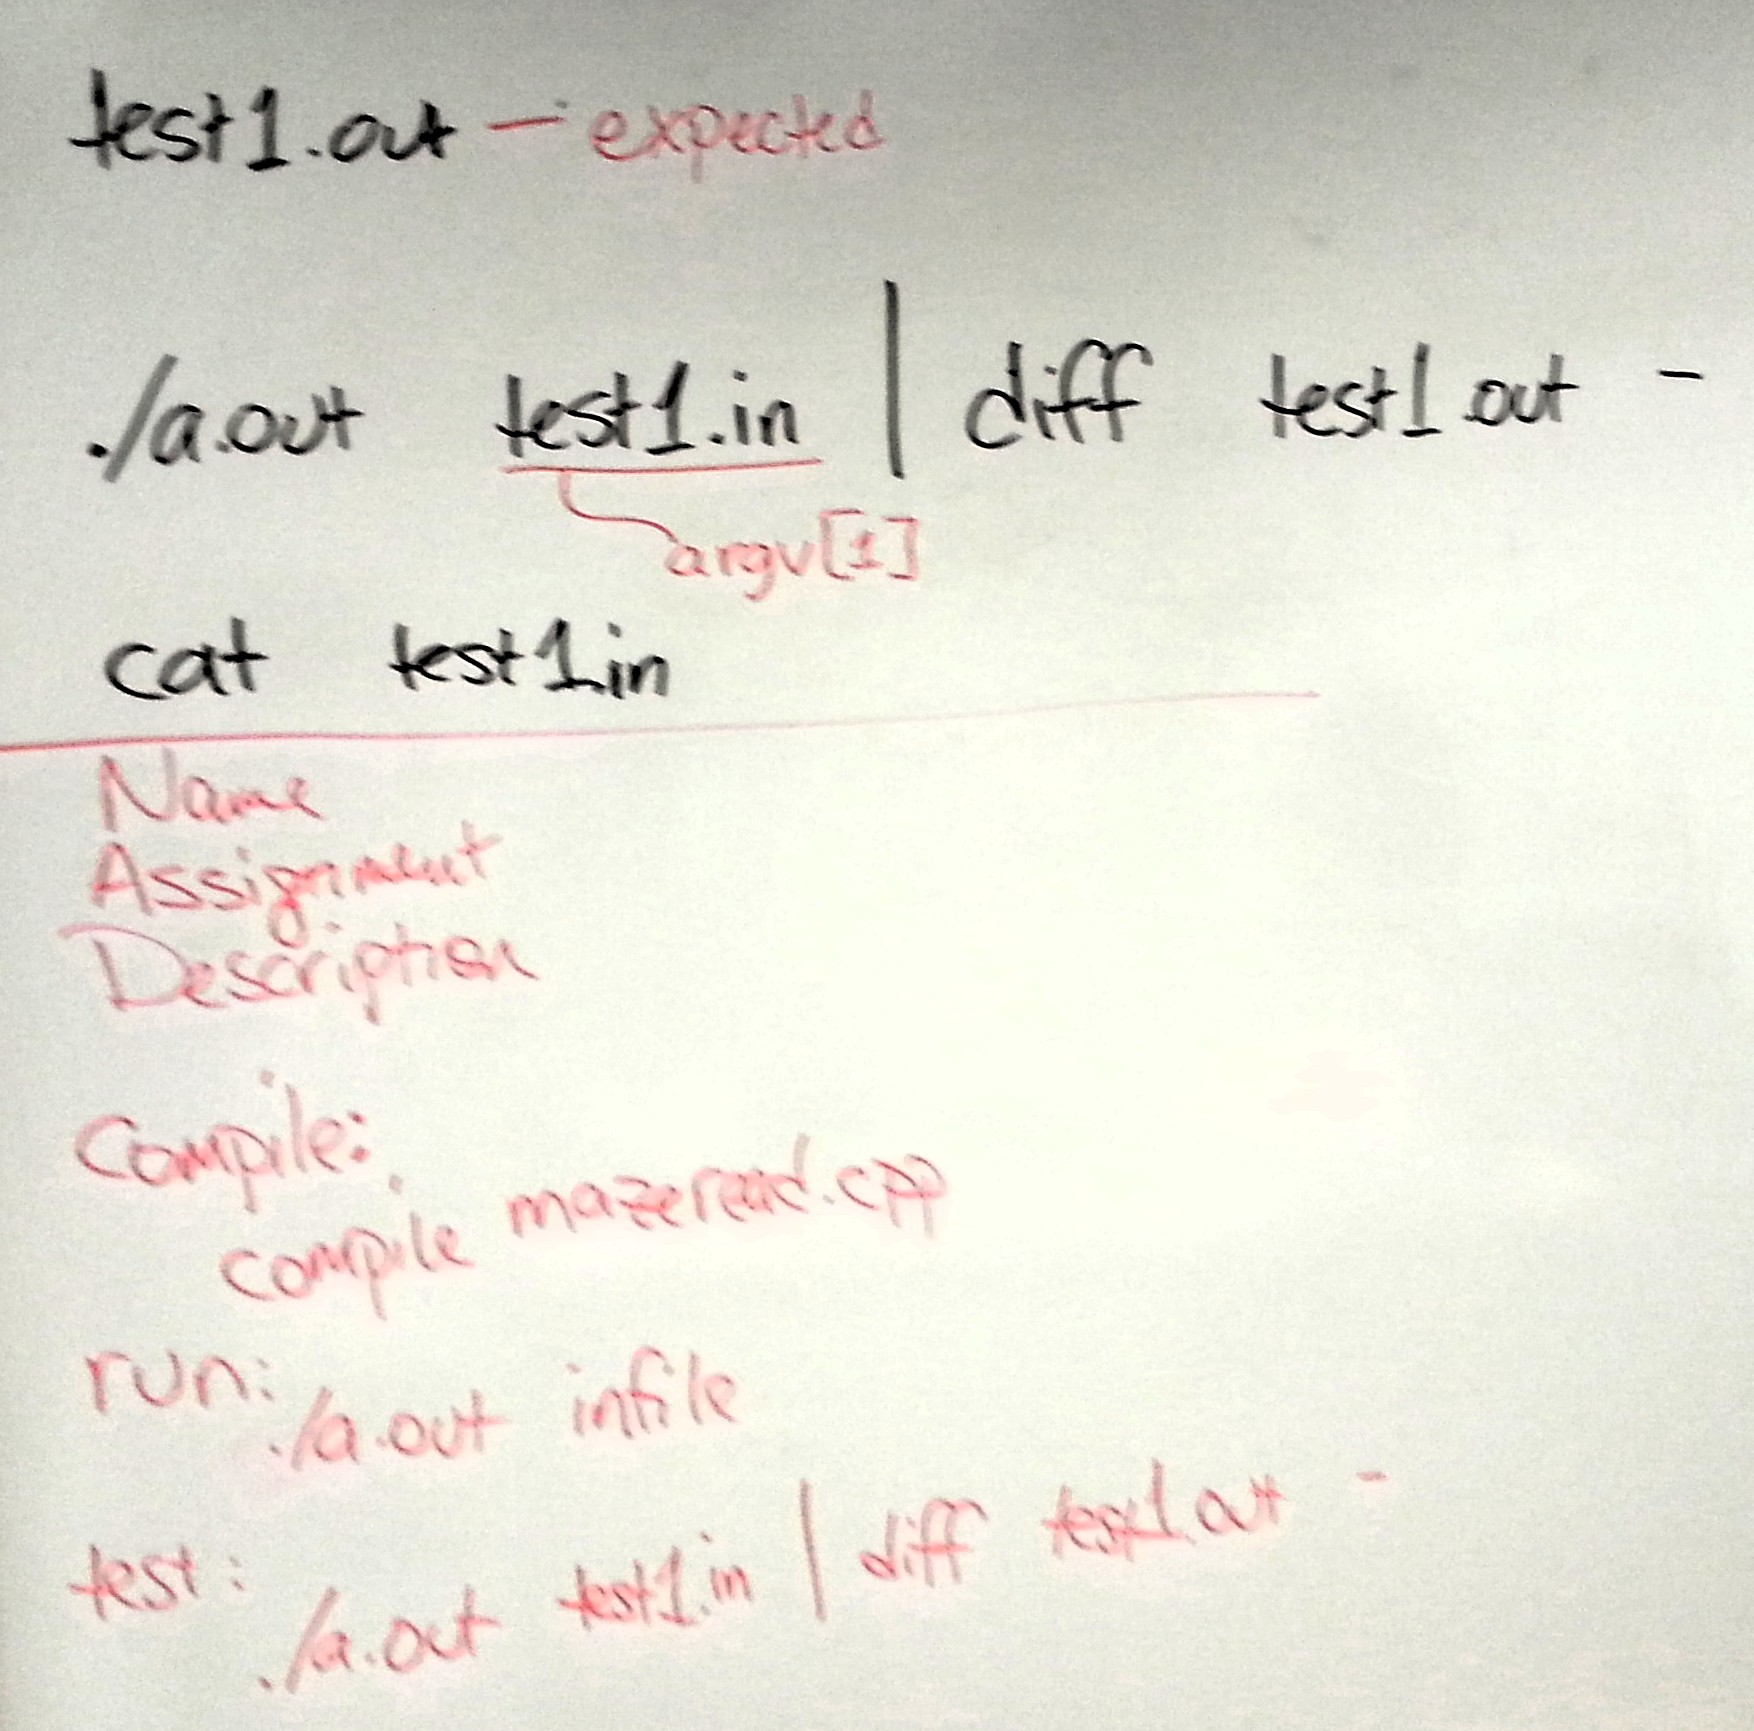 test1.out — expected
./a.out test1.in | diff test1.out -
argv[1]
cat test1.in
Name
Assignment
Description
Compile:
compile mazeread.cpp
run:
./a.out infile
test:
./a.out test1.in | diff test1.out -